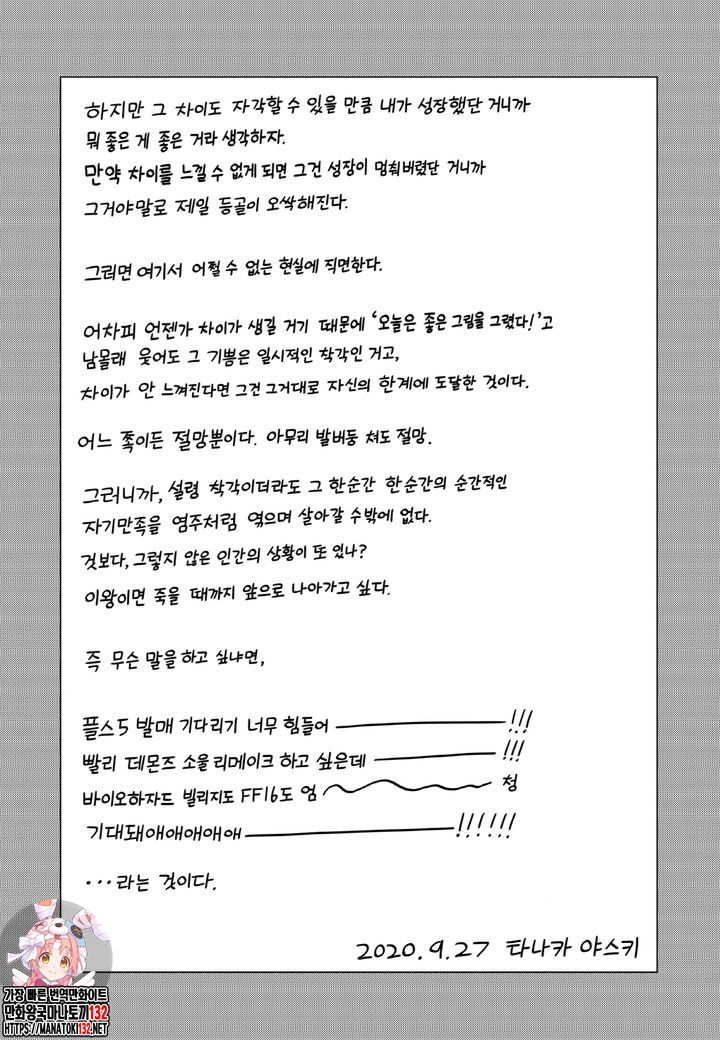 하지만 그 차이도 자각할 수 있을 만큼 내가 성장했단 거니까
뭐 좋은 게 좋은 거라 생각하자.
만약 차이를 느낄 수 없게 되면 그건 성장이 멈춰버렸단 거니까
그거야말로 제일 등골이 오싹해진다.
그러면 여기서 어쩔 수 없는 현실에 직면한다.
어차피 언젠가 차이가 생길 거기 때문에 '오늘은 좋은 그림을 그렸다!'고
남몰래 웃어도 그 기쁨은 일시적인 착각인 거고,
차이가 안 느껴진다면 그건 그거대로 자신의 한계에 도달한 것이다.
어느 쪽이든 절망뿐이다. 아무리 발버둥 쳐도 절망.
그러니까, 설령 착각이더라도 그 한순간 한순간의 순간적인
자기만족을 염주처럼 엮으며 살아갈 수밖에 없다.
것보다, 그렇지 않은 인간의 상황이 또 있나?
이왕이면 죽을 때까지 앞으로 나아가고 싶다.
즉 무슨 말을 하고 싶냐면,
플스5 발매 기다리기 너무 힘들어 ―――!!!
빨리 데몬즈 소울 리메이크 하고 싶은데 ―――!!!
바이오하자드 빌리지도 FF16도 엄~~~청
기대돼애애애애애 ―――!!!!!!
...라는 것이다.
2020.9.27 타나카 야스키
가장 빠른 번역만화사이트
만화왕국마나토끼132
HTTPS://MANATOKI132.NET